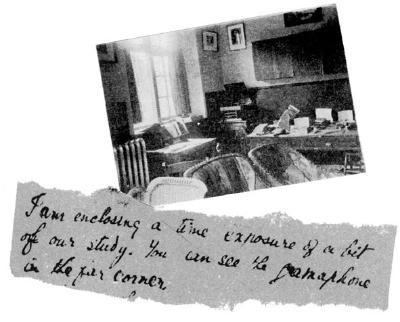 I am enclosing a time exposure of a bit
of our study. You can see the gamaphone
in the far corner